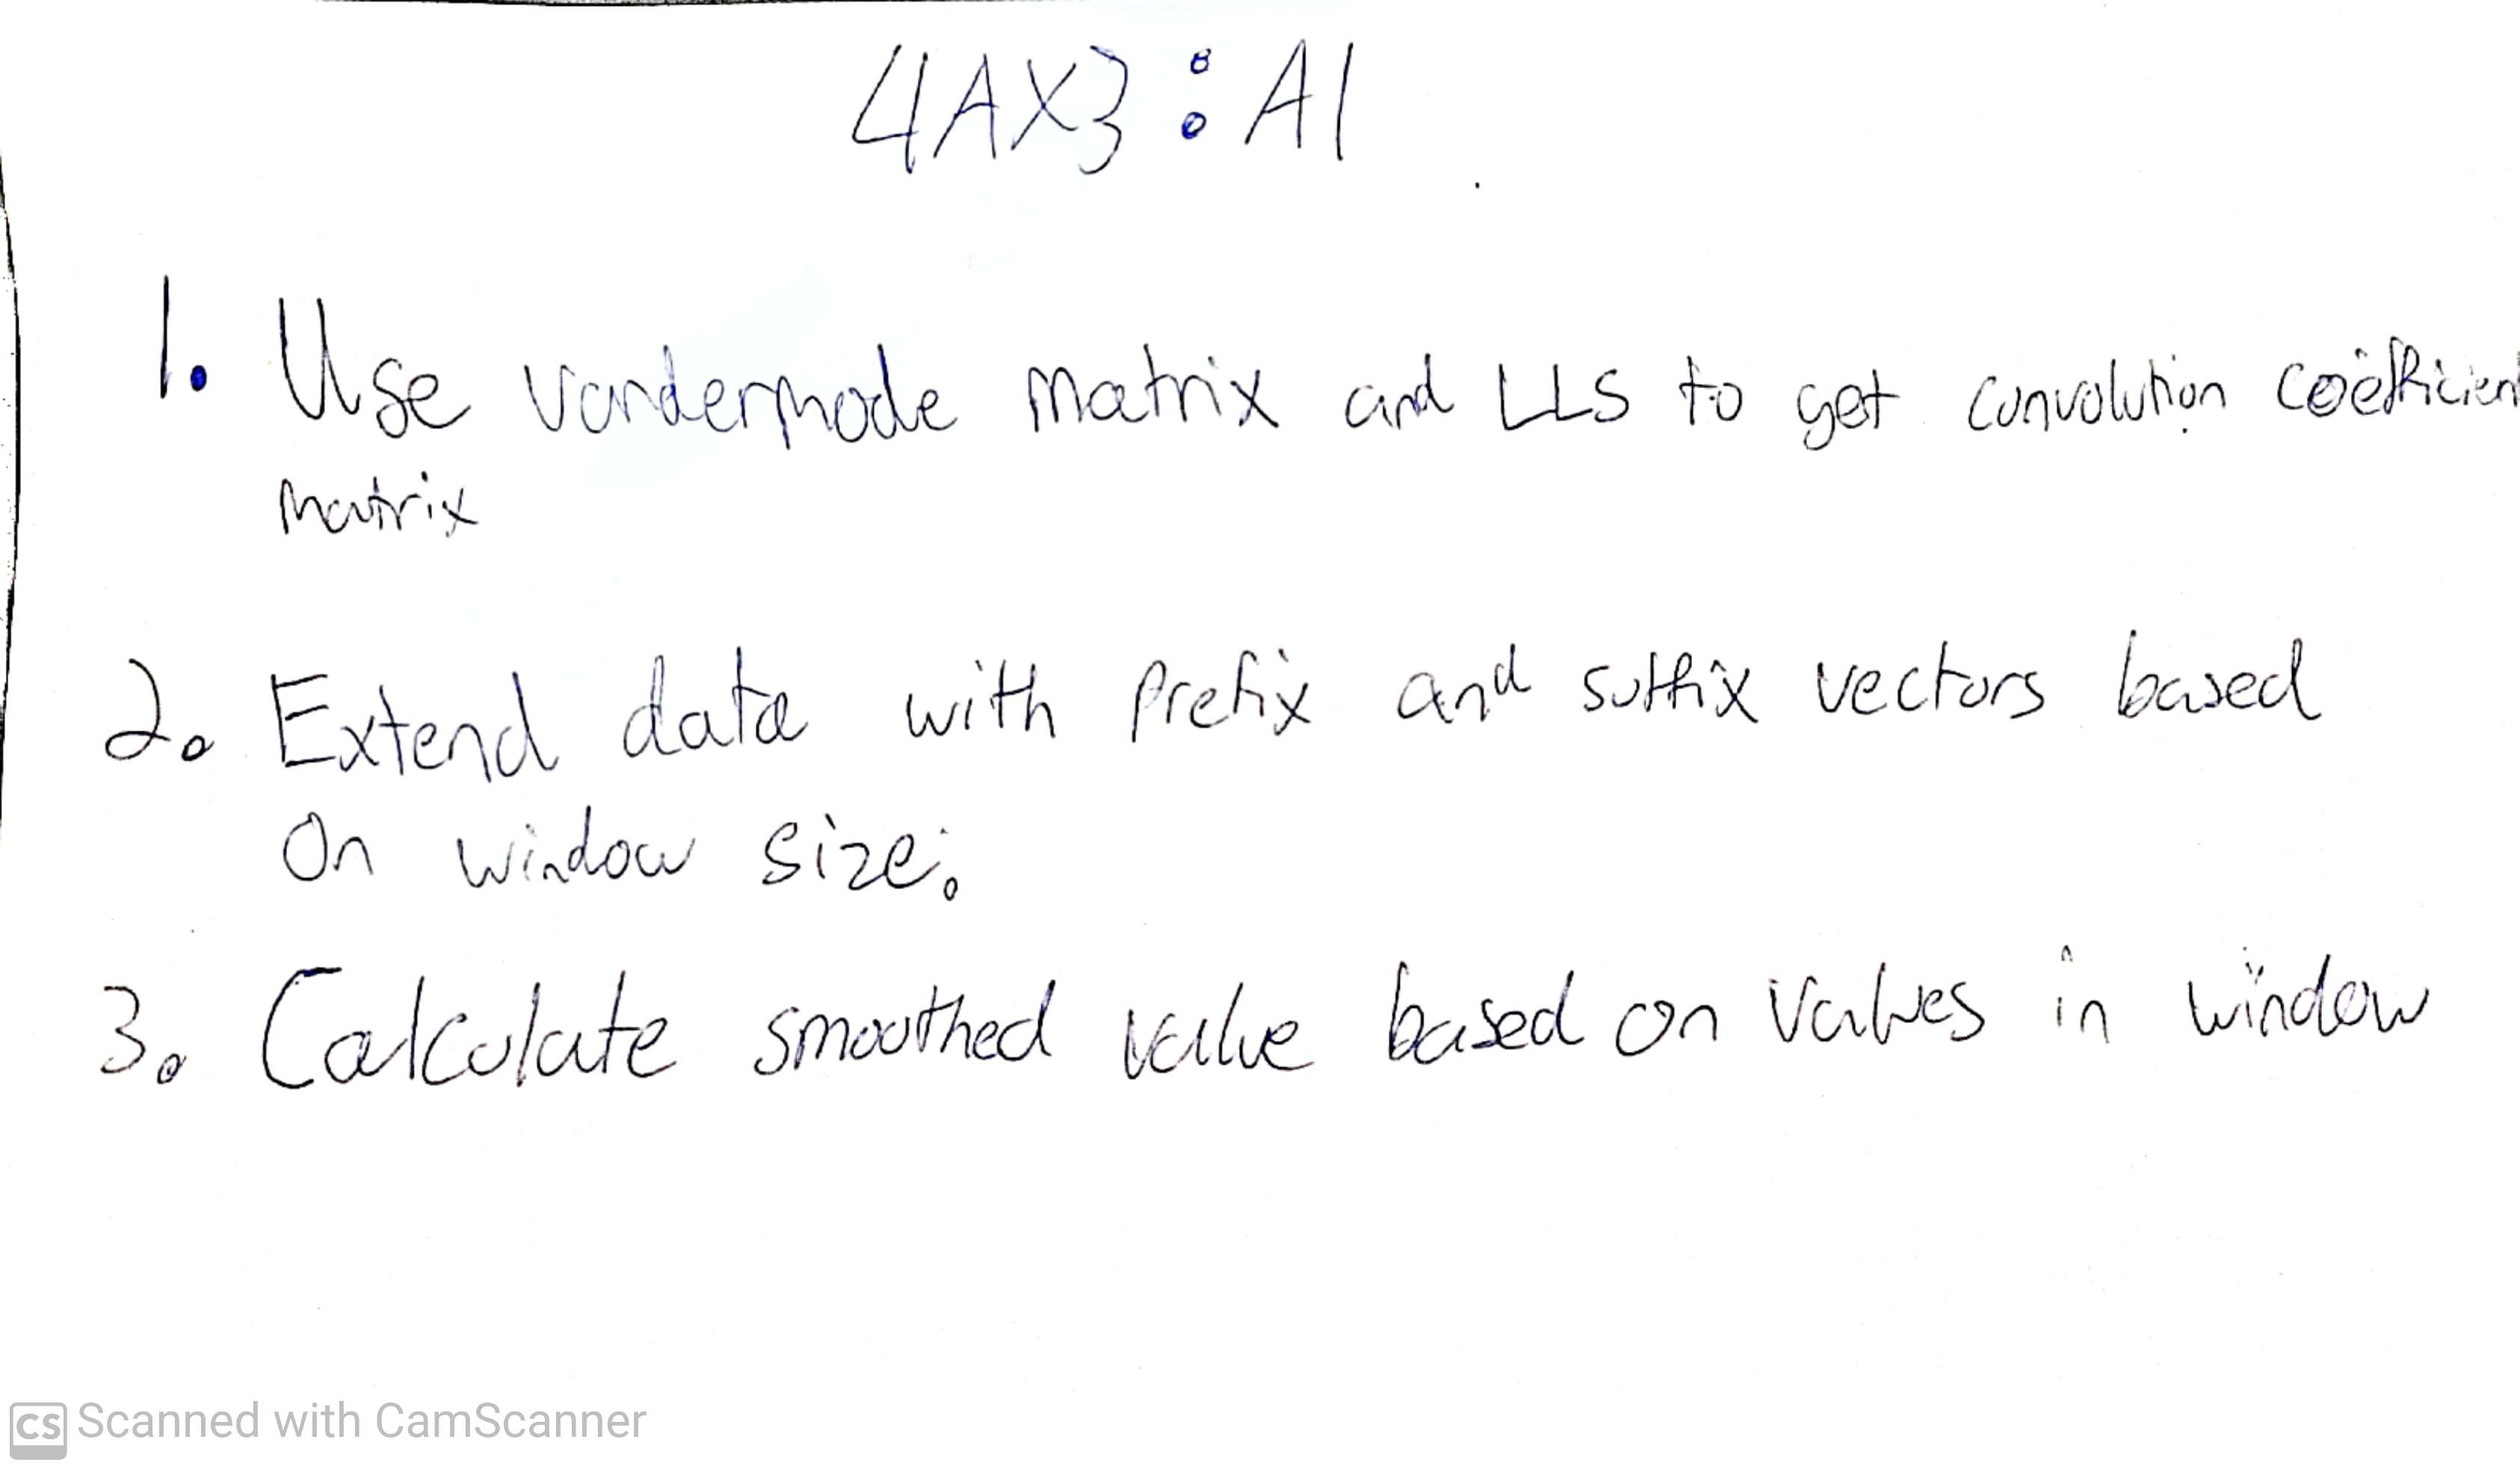 4AX3: A1
1. Use vandermode matrix and LLS to get convolution coefficient
matrix
2. Extend data with prefix and suffix vectors based
on window size.
3. Calculate smoothed value based on values in window
CS Scanned with CamScanner